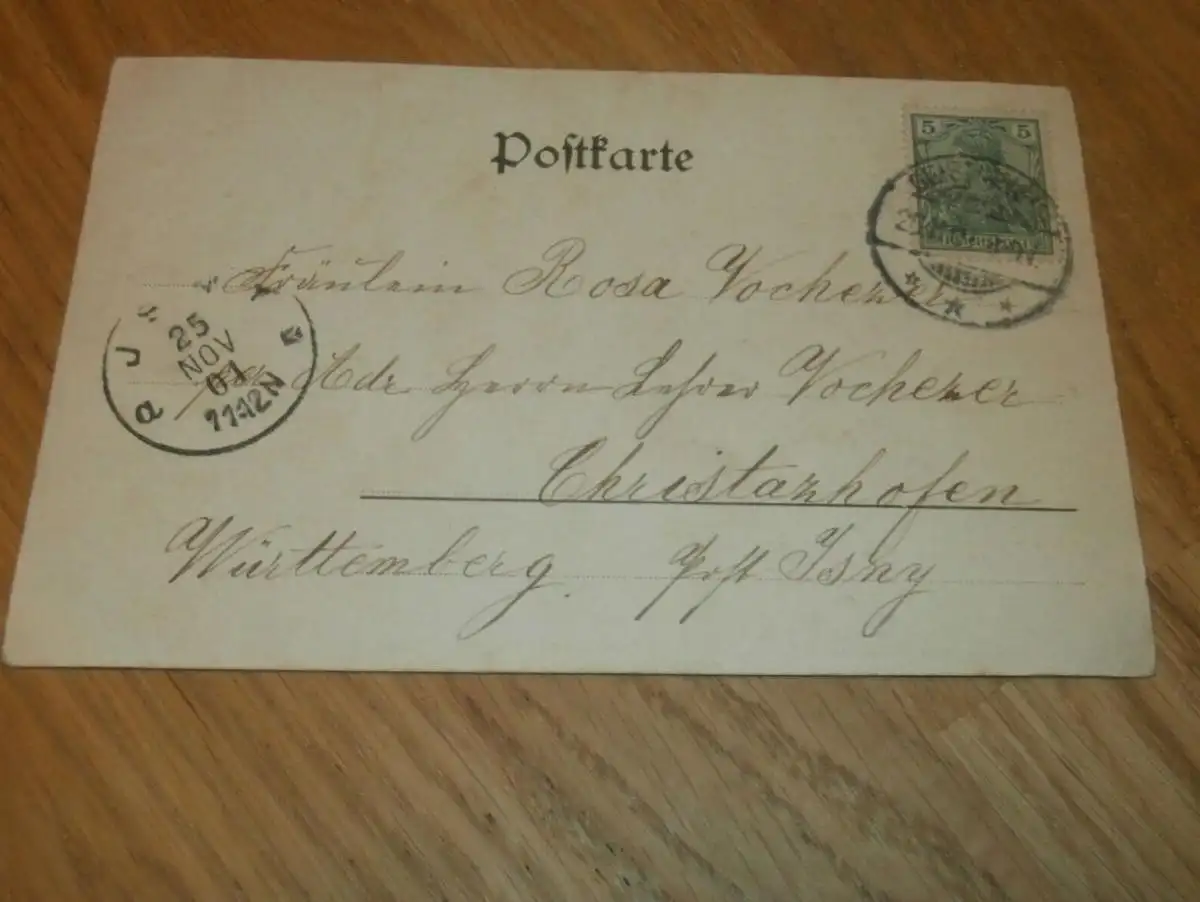 Postkarte
5 5
Fräulein Rosa Vochezer
Adr Herrn Lehrer Vochezer
Christazhofen
Württemberg. Post Isny
25
NOV
01
11-12N